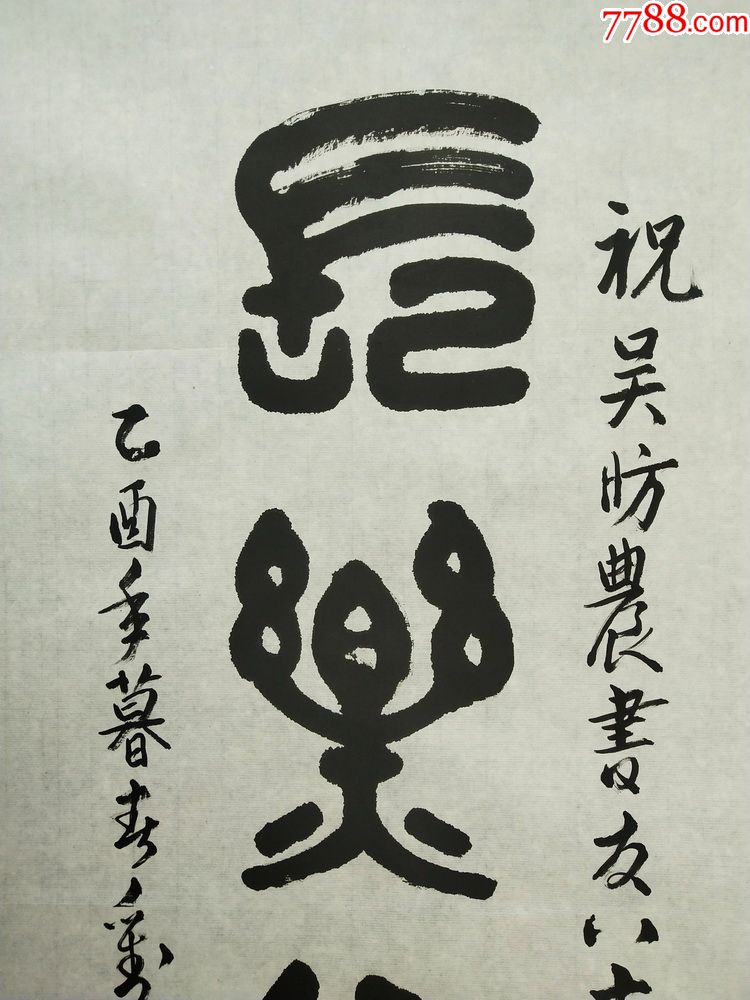 7788.com
祝吴昉農書友八十
長樂
乙酉年暮春